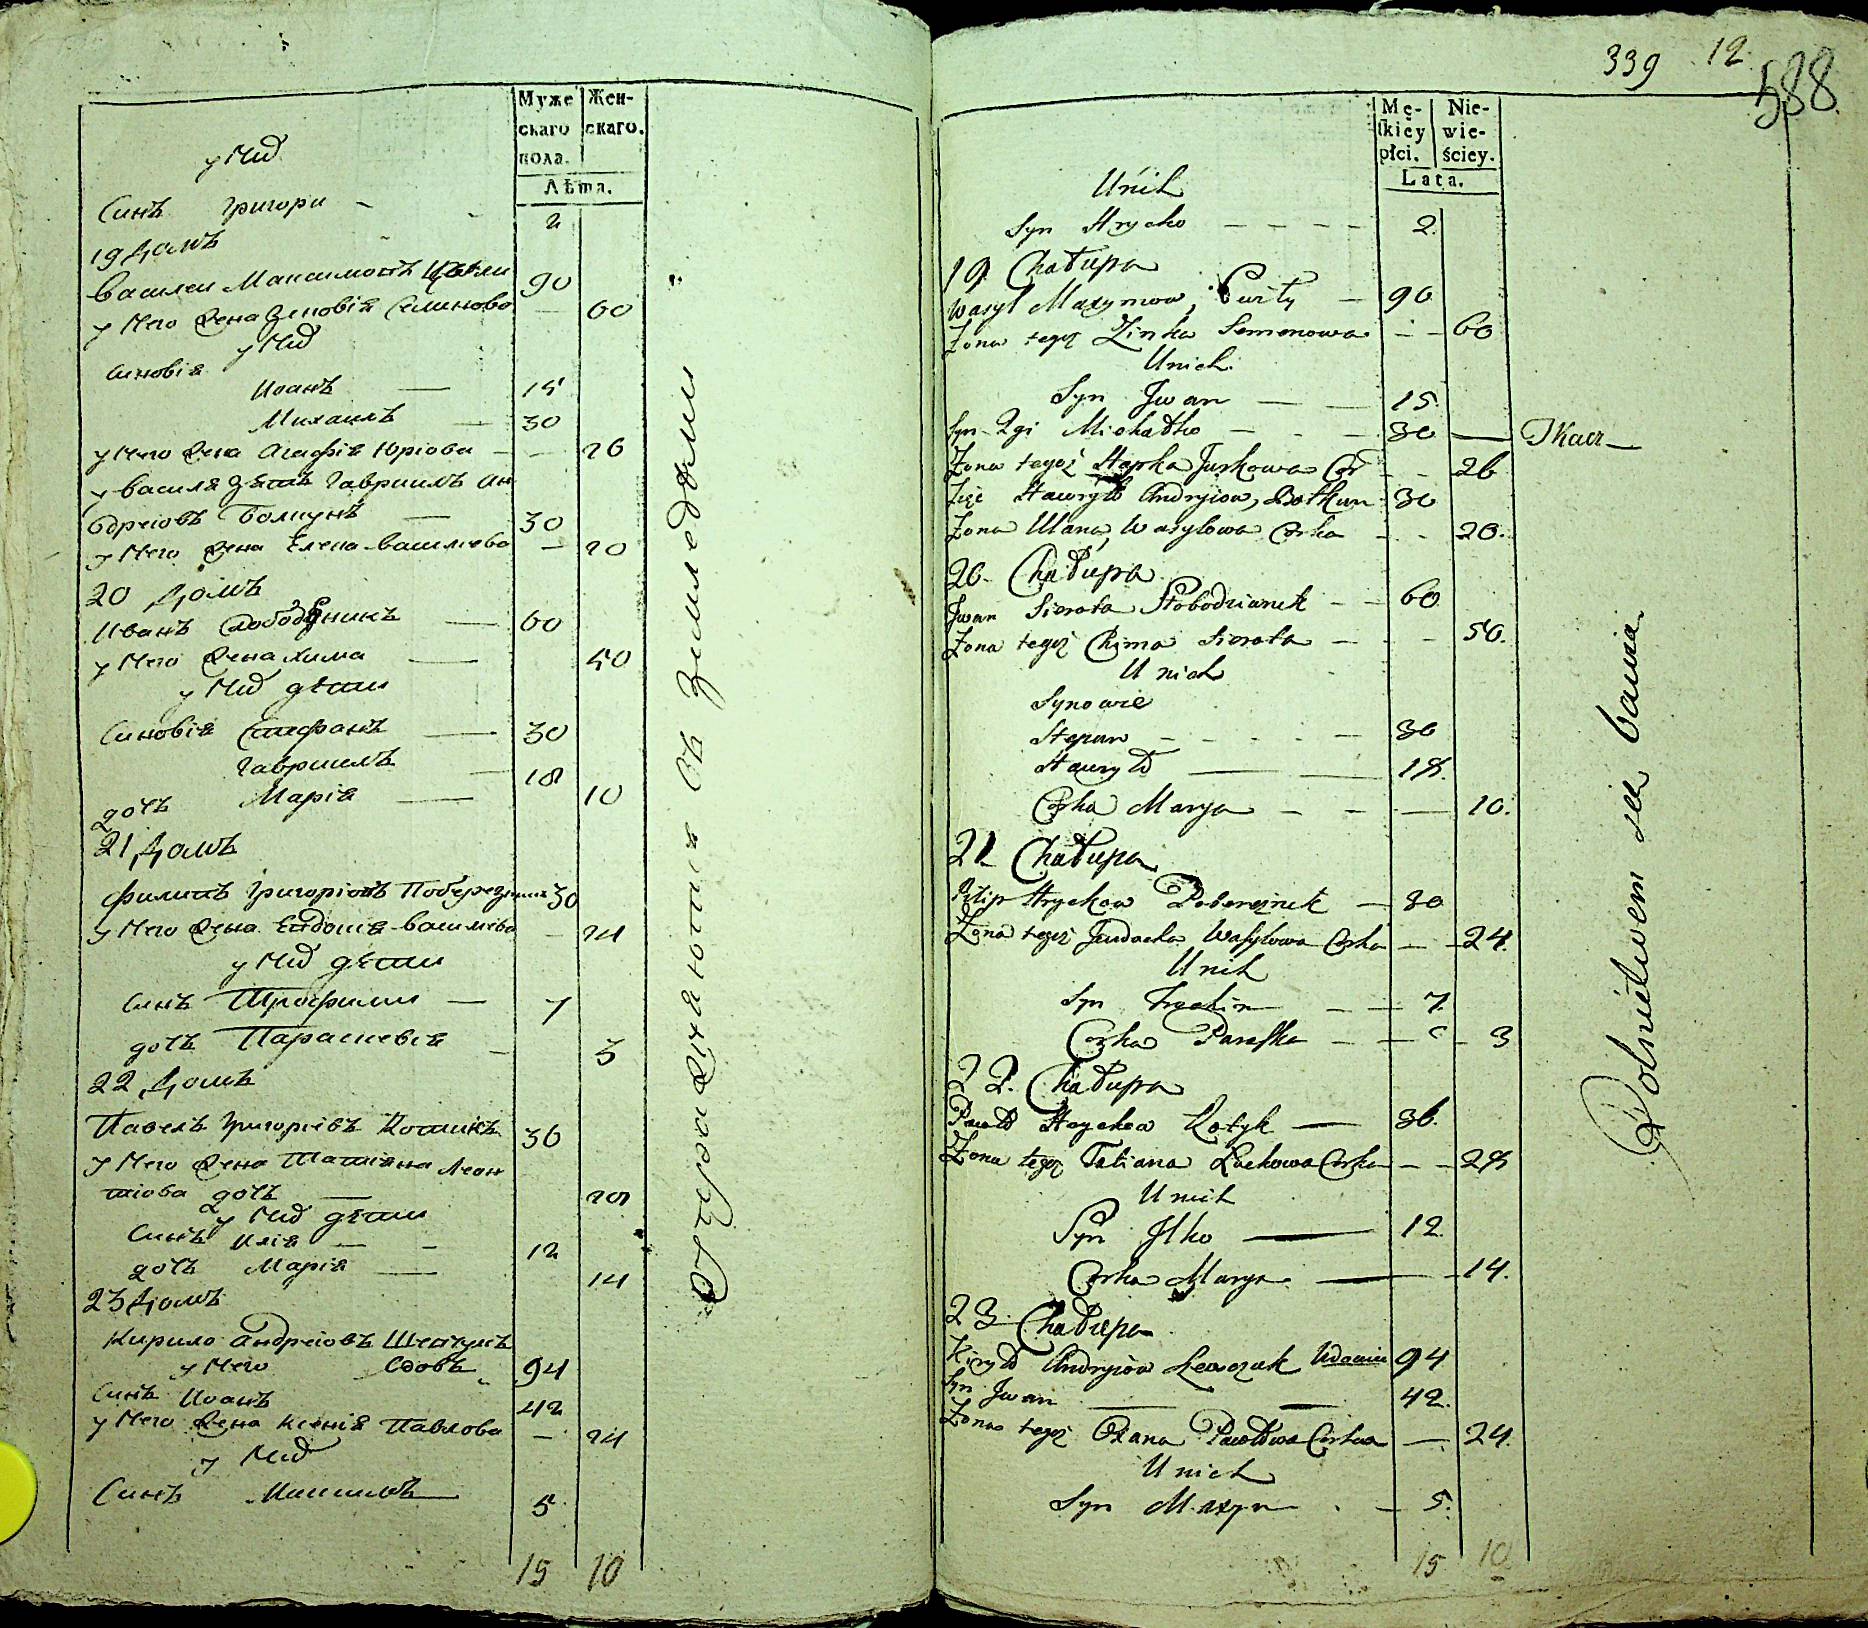 Муже
скаго
пола.
Жен-
скаго.
Лѣта.
у Них
Синъ Григори - - 2
19 Домъ
Василеи Максимовъ 90
у Него Жена Зеновія Семинова — 60
у Них
Синовія
Иоанъ — 15
Михаилъ — 30
у Него Жена Агафія Юріова — — 26
у Василя дѣтъ Гавриилъ Ан
дреiовъ Болкунъ — 30
у Него Жена Елена Василиева — 20
20 Домъ
Иванъ Слободяникъ — 60
у Него Жена Хима — 50
у Них дѣти
Синовія Стефанъ — 30
Гавриилъ — 18
дочъ Марія — 10
21 Домъ
Филипъ Григоріовъ Побережникъ 30
у Него Жена Евдокія Василиева — 24
у Них дѣти
Синъ Трофими — 7
дочъ Параскевія — 3
22 Домъ
Павелъ Григоріевъ Котикъ 36
у Него Жена Татіана Леон
тіова дочъ — 28
у Них дѣти
Синъ Илія — - 12
дочъ Марія — 14
23 Домъ
Кирило Андреіовъ
у Него Вдовъ 94
Синъ Иоанъ 42
у Него Жена Ксенія Павлова — 24
у Них
Синъ Максимъ 5
15 10
Упражняются въ Земледѣлии
339 12
588
Mę-
skiey
płci.
Nie-
wie-
ściey.
Lata.
U nich
Syn Hrycko — — — — 2.
19. Chałupa
Wasyl Maxymow, — 90
Zona tegoż Zinka Semenowa — — 60
U nich
Syn Jwan — — 15
Syn 2gi Michałko — - — 30 — Tkacz
Zona tegoż Hapka Jurkowa Cor - - 26
Zięć Hawryło Andryiow, Bołkun 30
Zona Ulana, Wasylowa Corka - - 20.
20. Chałupa
Jwan Sierota Słobodzianik - - 60
Zona tegoż Chima Sierota — - - 50.
U nich
Synowie
Stepan — - - - — 30
Hawryło — — 18.
Corka Marya — - — 10.
21 Chałupa
Pilip Hryckow Pobereznik — 30
Zona tegoż Jewdocha Wasylowa Corka — — 24.
U nich
Syn Trochim — — 7.
Corka Paraska — — - 3
22. Chałupa
Pawło Hryckow Kotyk — 36.
Zona tegoż Tatiana Corka — — 28
U nich
Syn Jlko — 12
Corka Marya — — 14.
23. Chałupa
Kiryło Andryiow Udowiec 94
Syn Jwan — — 42.
Zona tegoż Oxana Pawłowa Corka — 24.
U nich
Syn Maxym . — 5.
15 10
Rolnictwem się bawią